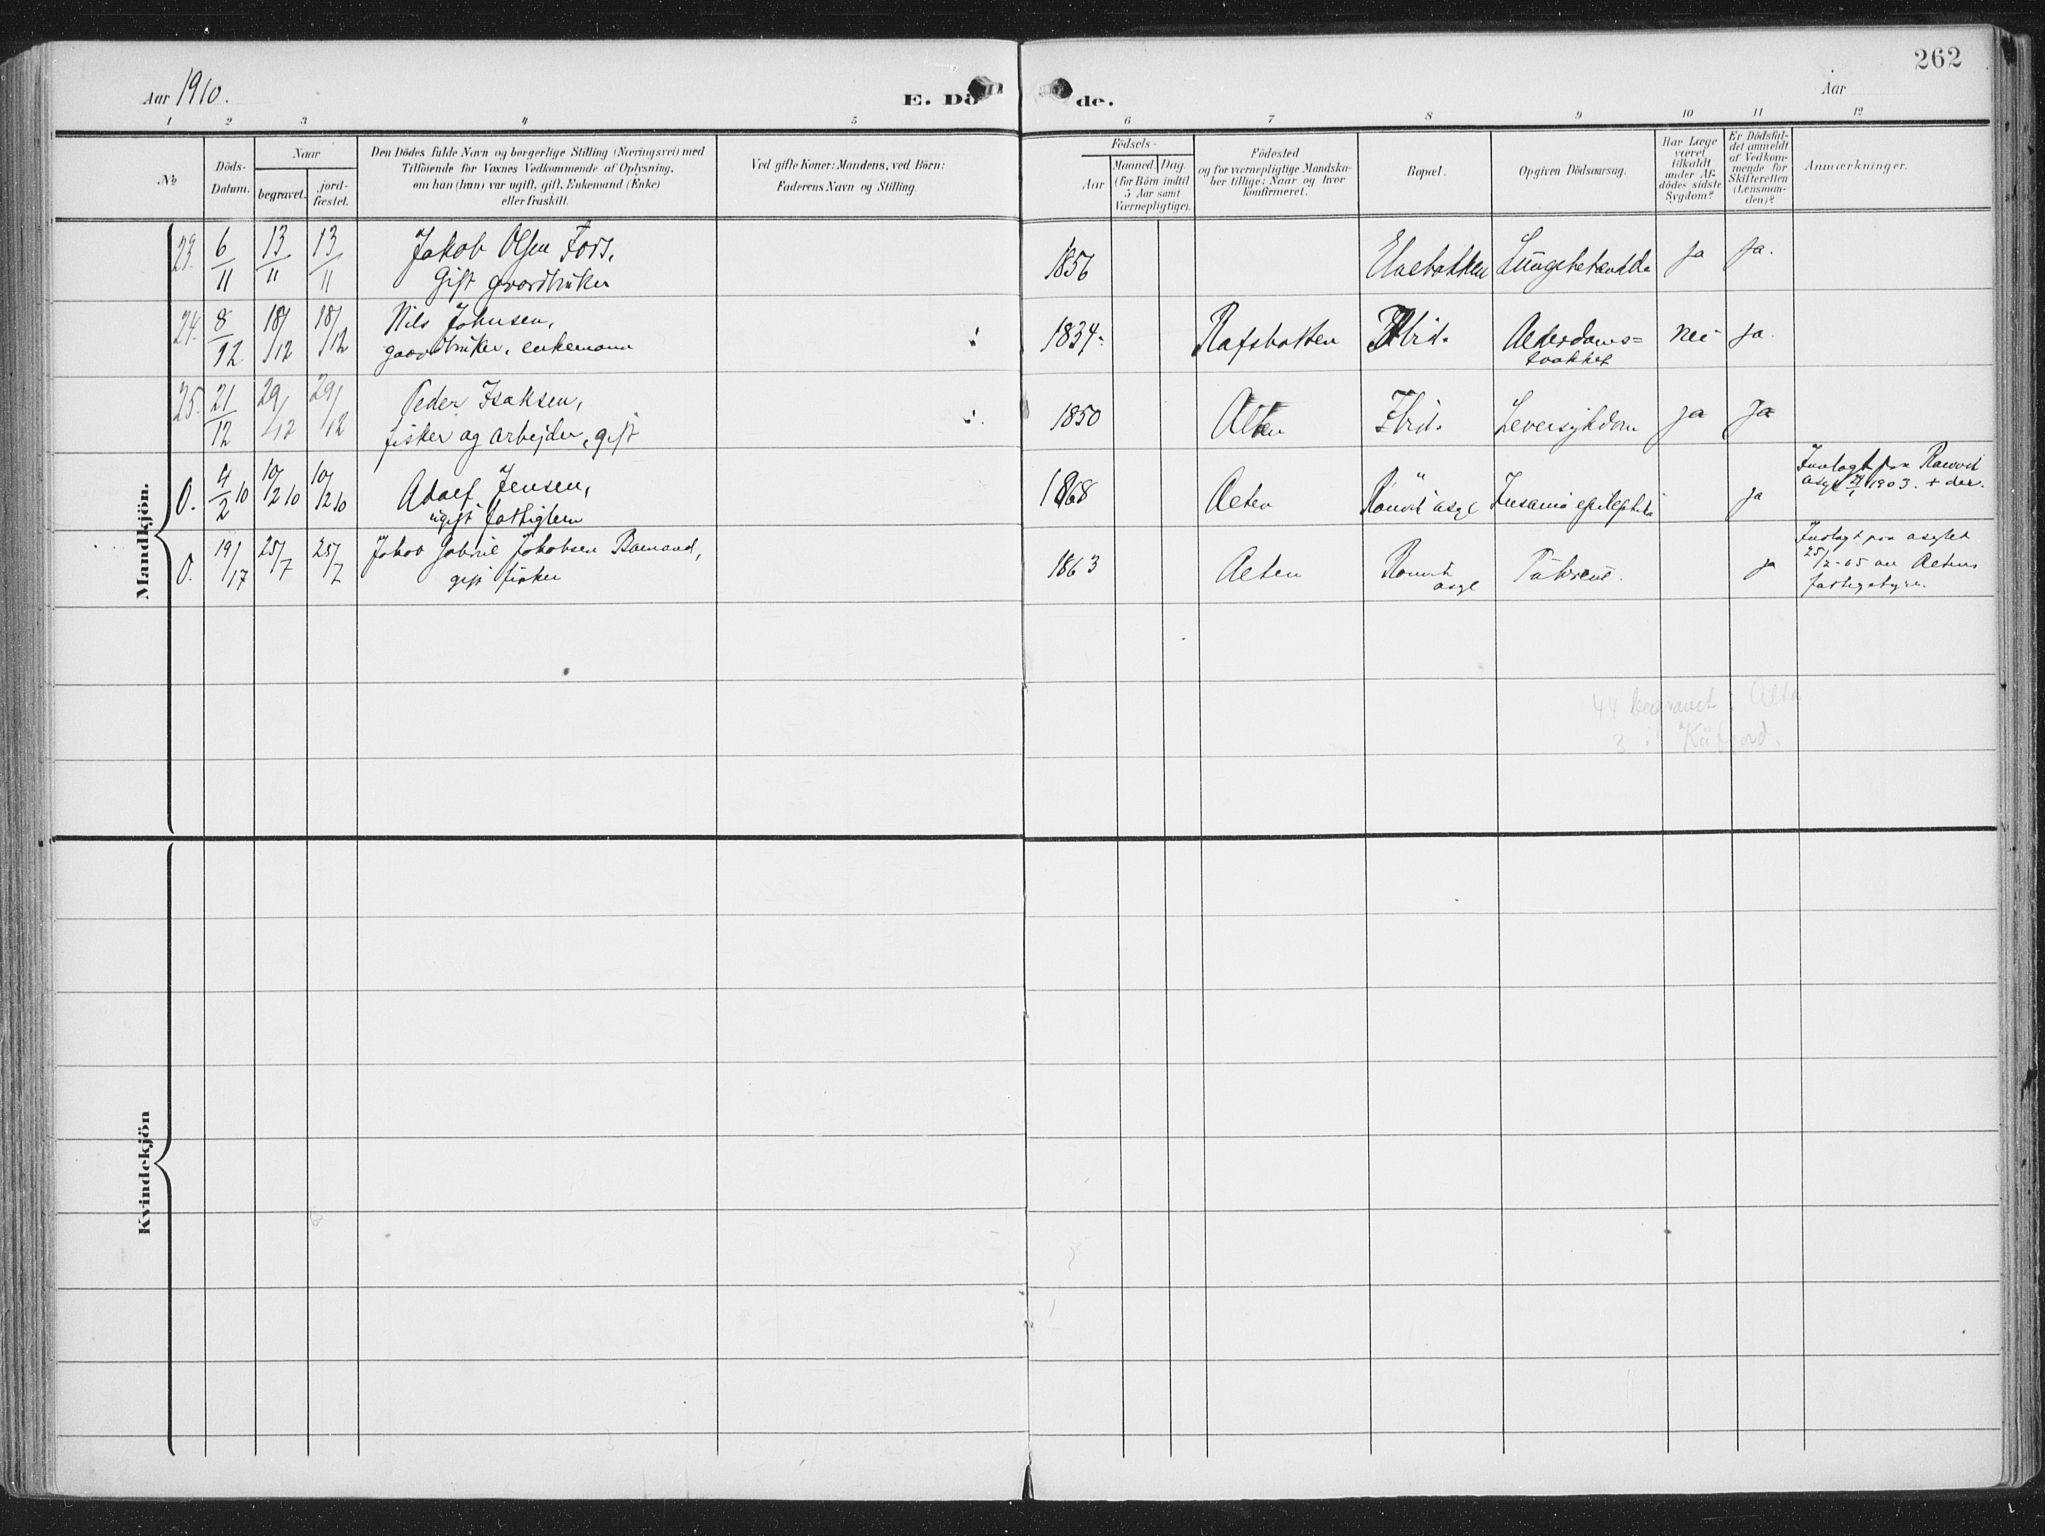 262
Aar 1910.
E. Dö de.
Aar
1 2 3 4 5 6 7 8 9 10 11 12
No
Döds-
Datum.
Naar
begravet.
jord-
fæstet.
Den Dödes fulde Navn og borgerlige Stilling (Næringsvei) med
Tilföiende for Voxnes Vedkommende af Oplysning,
om han (hun) var ugift, gift, Enkemand (Enke)
eller fraskilt.
Ved gifte Koner: Mandens, ved Börn:
Faderens Navn og Stilling.
Födsels-
Aar
Maaned. Dag.
(for Börn indtil
5 Aar samt
Værnepligtige).
Födested
og for værnepligtige Mandska-
ber tillige: Naar og hvor
konfirmeret.
Bopæl.
Opgiven Dödsaarsag.
Har Læge
været
tilkaldt
under Af-
dödes sidste
Sygdom?
Er Dödsfal-
det anmeldt
af Vedkom-
mende for
Skifteretten
(Lensman-
den)?
Anmærkninger.
Mandkjön.
23. 6/11 13/11 13/11 Jakob Olsen Fors, 1856 Elvebakken Lungebetændelse ja ja.
Gift gaardbruker
24. 8/12 18/12 18/12 Nils Johnsen, 1834. Rafsbotten Ibid. Alderdoms= nei ja.
gaardbruker, enkemann svakhet
25. 21/12 29/12 29/12 Peder Isaksen, 1850 Alten Ibid. Leversykdom ja Ja
fisker og arbejder, gift
O. 4/2 10 10/12 10 10/12 10 Adolf Jensen, 1868 Alten Rönvik asyl Insania epileptica ja
ugift fattiglem
Indlagt paa Rønvik
asyl 1903. + der.
O. 19/17 25/7 25/7 Jakob Gabriel Jakobsen 1863 Alten Rönvik asyl ja
gift fisker
Indlagt paa asylet
25/2-05 av Altens
fattigstyre.
44 begravet i Alta
3 i Kåfjord.
Kvindekjön